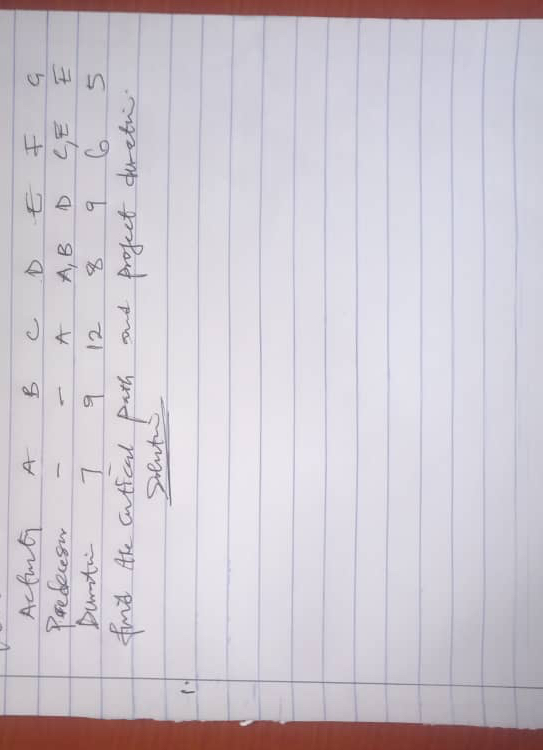 Activity A B C D E F G
Predecessor - - A A,B D C,E E
Duration 7 9 12 8 9 6 5
find the critical path and project duration.
Solution
1.